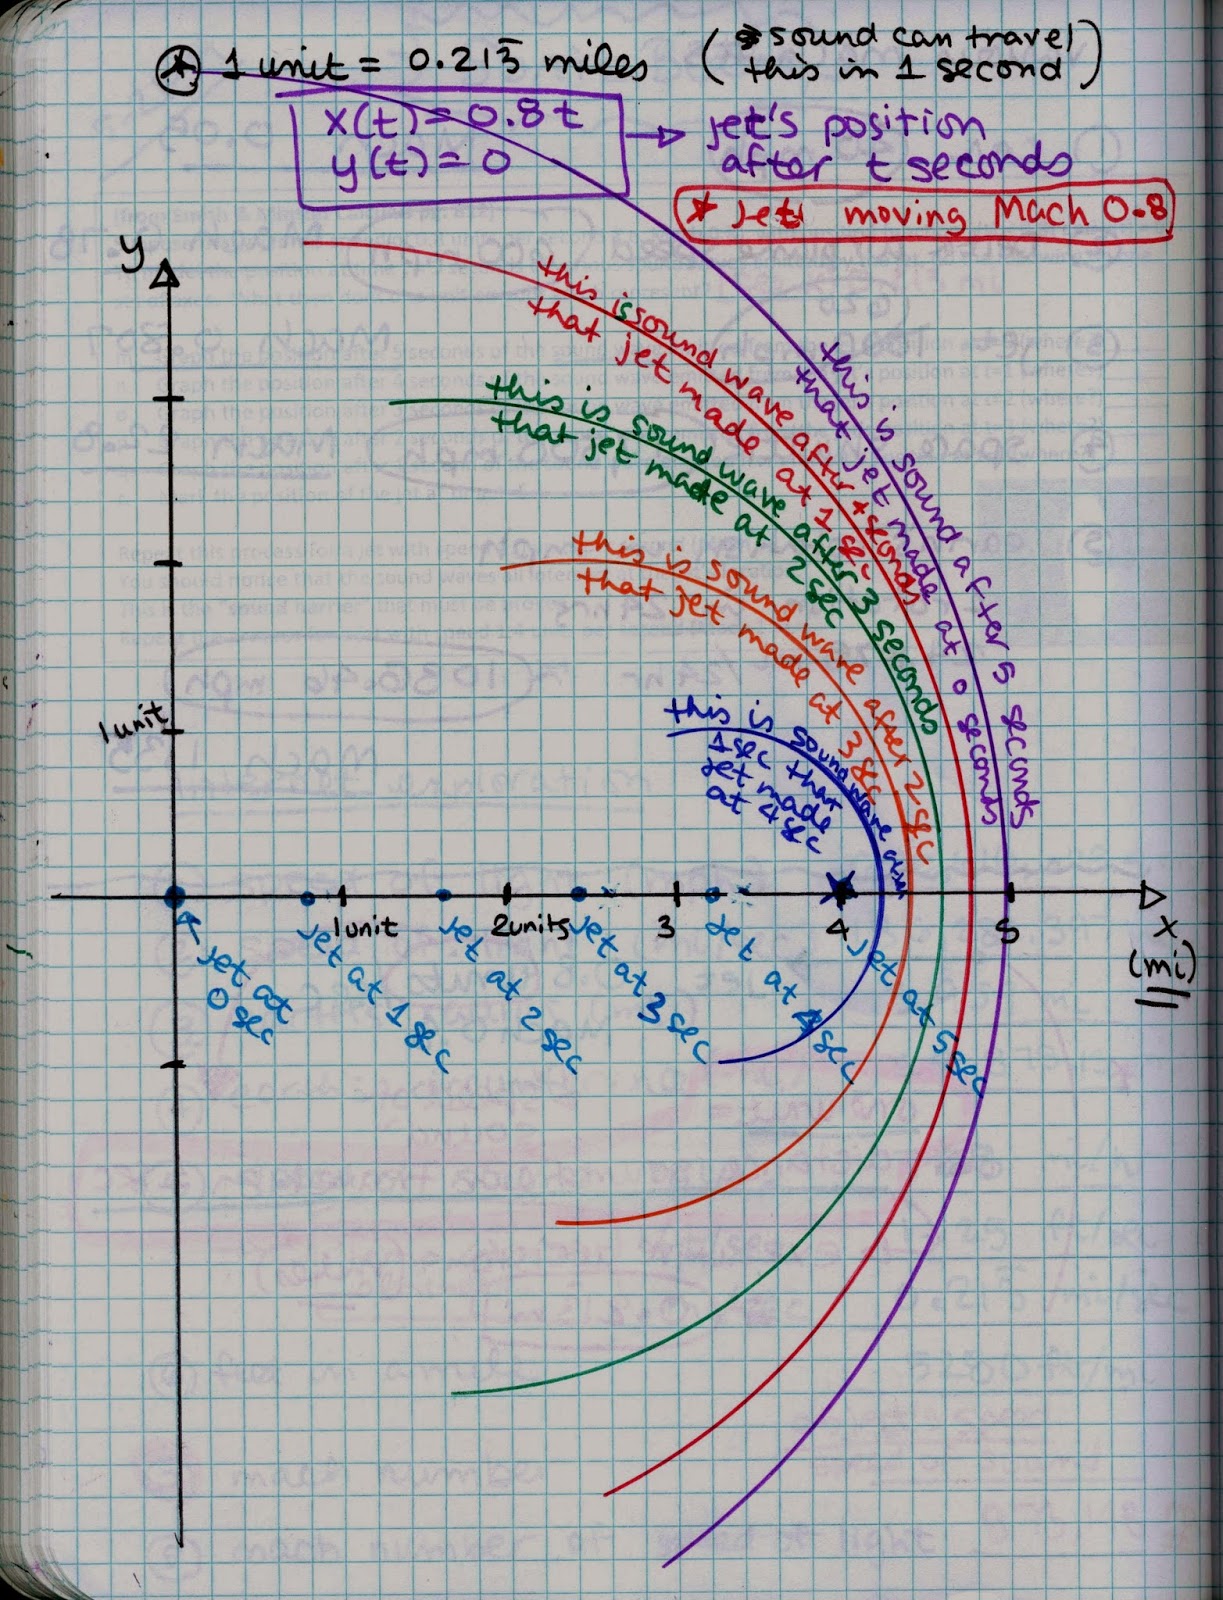 1 unit = 0.213̅ miles (→ sound can travel this in 1 second)
x(t) = 0.8t
y(t) = 0
→ jet's position
after t seconds
* Jet's moving Mach 0.8
y
this is sound wave after 4 seconds
that jet made at 1 sec
this is sound after 5 seconds
that jet made at 0 seconds
this is sound wave after 3 seconds
that jet made at 2 sec
this is sound wave after 2 sec
that jet made at 3 sec
this is sound wave after
1 sec that
jet made
at 4 sec
1 unit
1 unit
2 units
3
4
5
x
(mi)
jet at
0 sec
jet at 1 sec
jet at 2 sec
jet at 3 sec
jet at 4 sec
jet at 5 sec